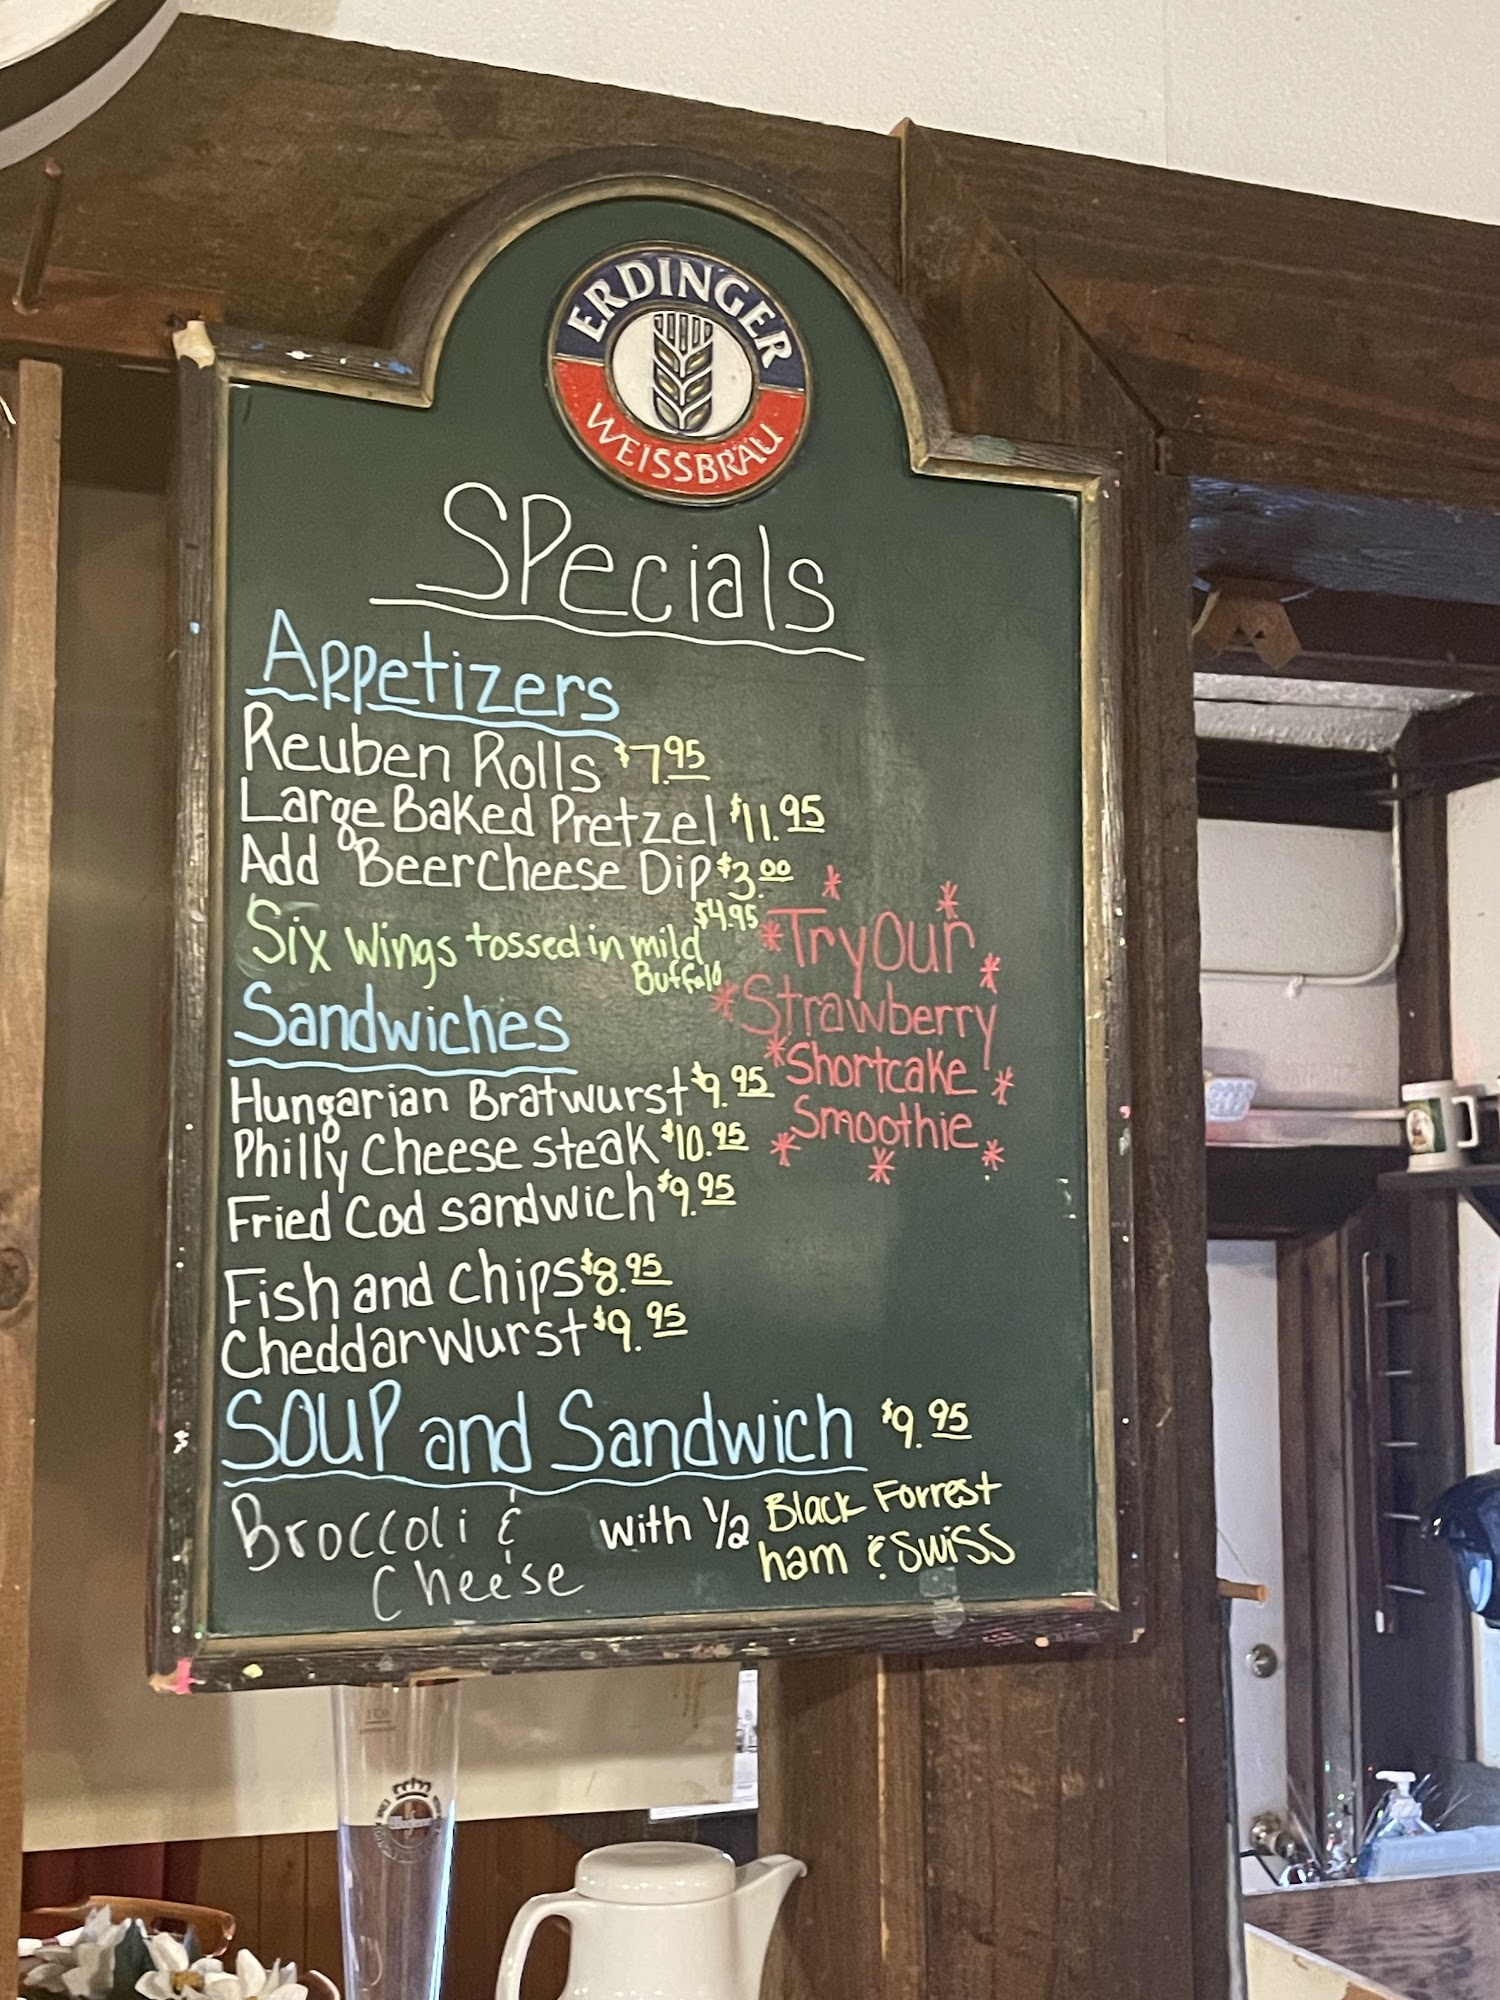 ERDINGER
WEISSBRÄU
SPecials
Appetizers
Reuben Rolls $7.95
Large Baked Pretzel $11.95
Add Beer Cheese Dip $3.00
Six Wings tossed in mild $4.95
Buffalo
*Try Our*
*Strawberry
*Shortcake*
*Smoothie*
Sandwiches
Hungarian Bratwurst $9.95
Philly Cheese steak $10.95
Fried Cod sandwich $9.95
Fish and Chips $8.95
Cheddarwurst $9.95
SOUP and Sandwich $9.95
Broccoli &
Cheese
with 1/2 Black Forrest
ham & Swiss